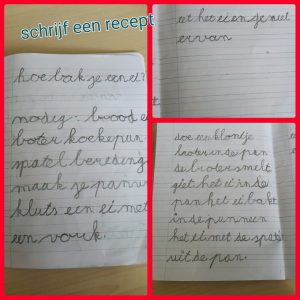 schrijf een recept
hoe bak je een ei?
nodig: brood e
boter koekepan
spatel bereiding
maak je pan w
kluts een ei met
een vork.
doe een klontje
boter in de pan
de boter smelt
giet het ei in de
pan het ei bakt
in de pan neem
het ei met de spate
uit de pan.
eet het ei en geniet
ervan